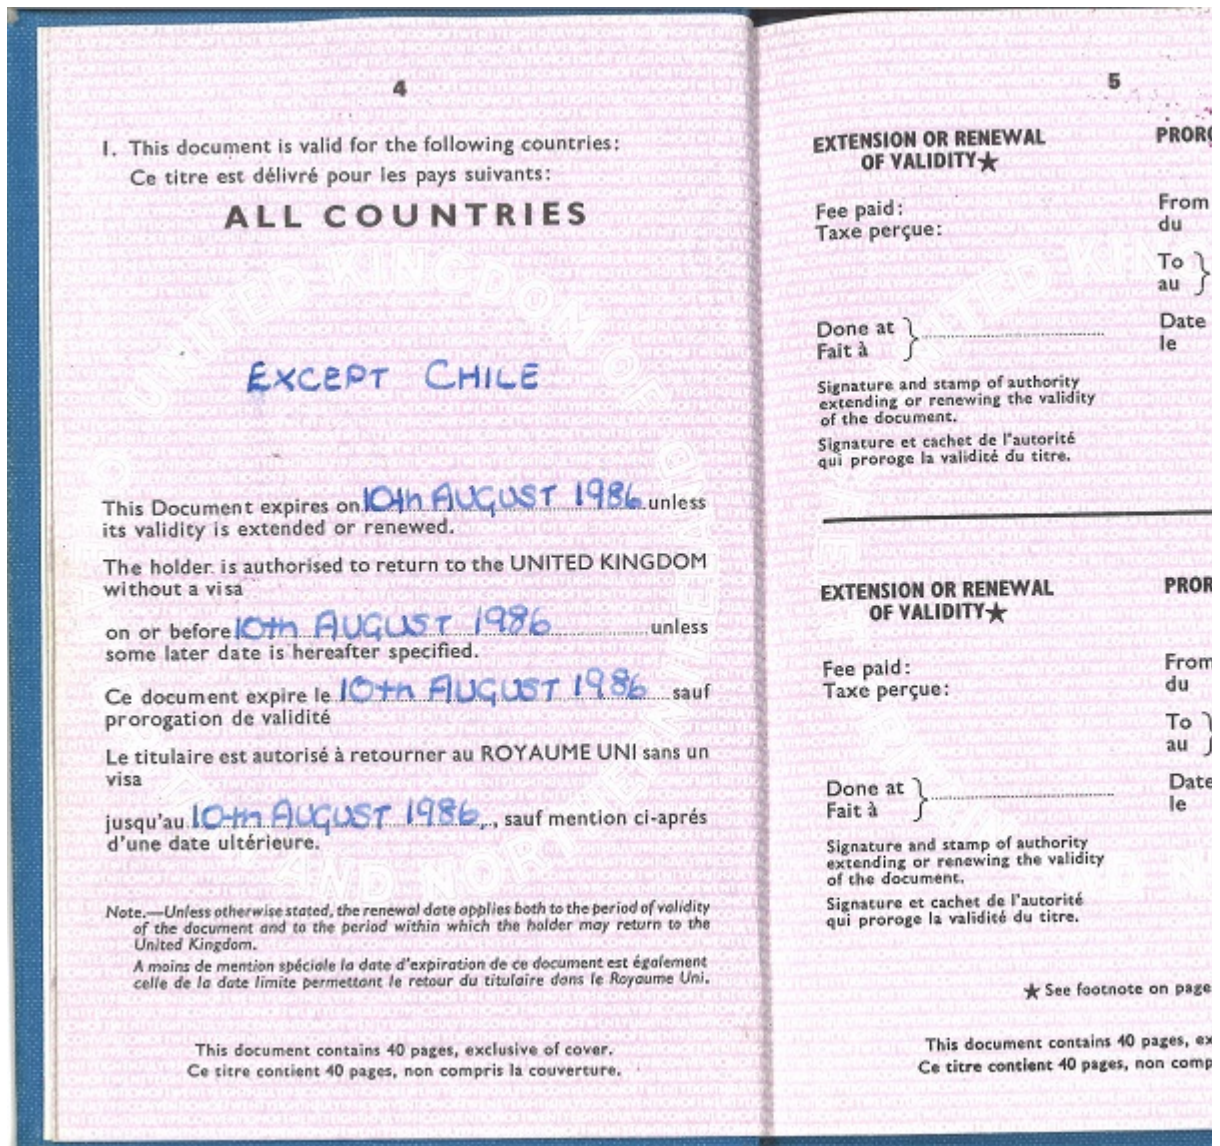 4
1. This document is valid for the following countries:
Ce titre est délivré pour les pays suivants:
ALL COUNTRIES
EXCEPT CHILE
This Document expires on 10th AUGUST 1986 unless
its validity is extended or renewed.
The holder is authorised to return to the UNITED KINGDOM
without a visa
on or before 10th AUGUST 1986 unless
some later date is hereafter specified.
Ce document expire le 10th AUGUST 1986 sauf
prorogation de validité
Le titulaire est autorisé à retourner au ROYAUME UNI sans un
visa
jusqu'au 10th AUGUST 1986, sauf mention ci-aprés
d'une date ultérieure.
Note.—Unless otherwise stated, the renewal date applies both to the period of validity
of the document and to the period within which the holder may return to the
United Kingdom.
A moins de mention spéciale la date d'expiration de ce document est également
celle de la date limite permettant le retour du titulaire dans le Royaume Uni.
This document contains 40 pages, exclusive of cover.
Ce titre contient 40 pages, non compris la couverture.
5
EXTENSION OR RENEWAL
OF VALIDITY★
Fee paid:
Taxe perçue:
From
du
To
au
Done at
Fait à
Date
le
Signature and stamp of authority
extending or renewing the validity
of the document.
Signature et cachet de l'autorité
qui proroge la validité du titre.
EXTENSION OR RENEWAL
OF VALIDITY★
Fee paid:
Taxe perçue:
From
du
To
au
Done at
Fait à
Date
le
Signature and stamp of authority
extending or renewing the validity
of the document.
Signature et cachet de l'autorité
qui proroge la validité du titre.
★ See footnote on page
This document contains 40 pages,
Ce titre contient 40 pages, non